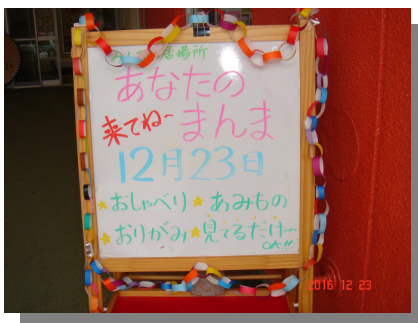 居場所
あなたの
来てね〜 まんま
12月23日
★おしゃべり★あみもの
★おりがみ★見てるだけ〜
OK!!
2016 12 23